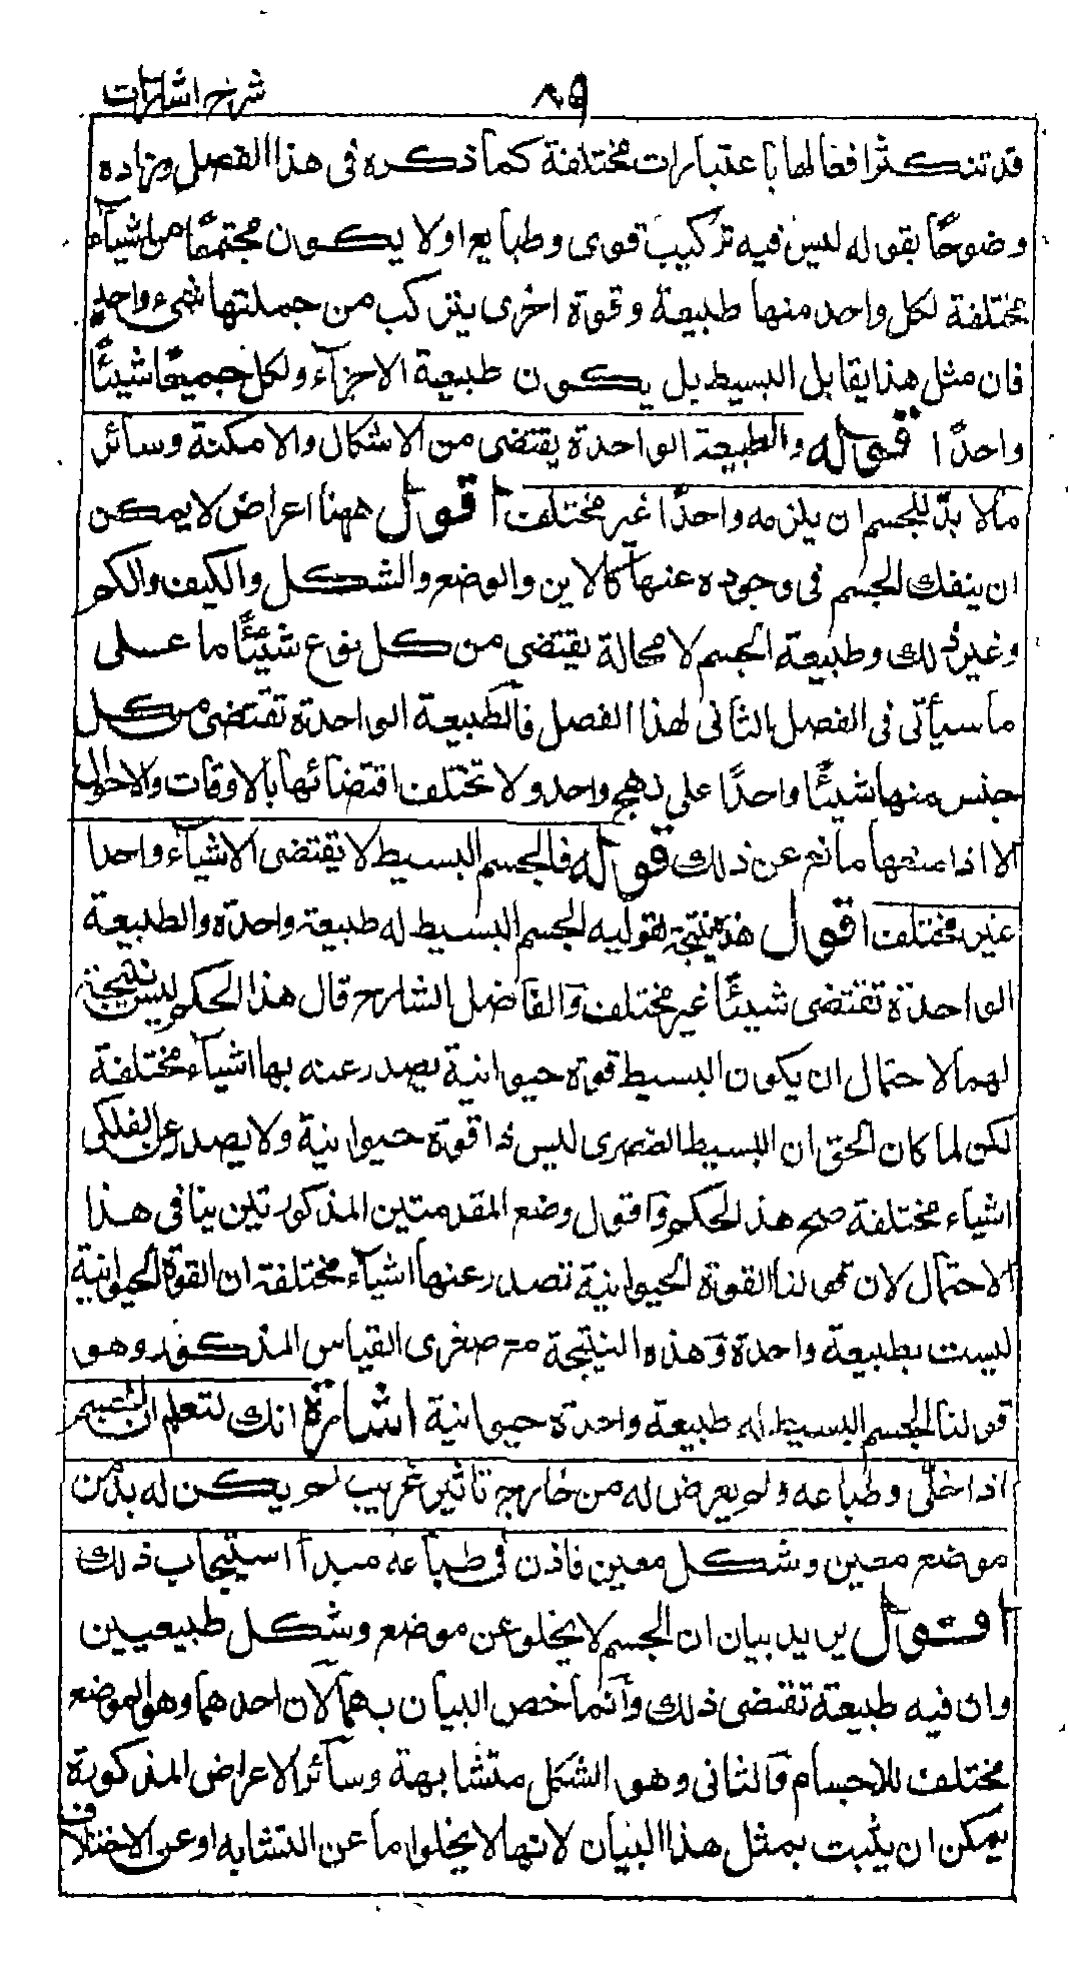 شرح اشارات
٨٩
قد تتكثر افعالها باعتبارات مختلفة كما ذكره فى هذا الفصل وزاده
وضوحًا بقوله ليس فيه تركيب قوى وطبايع اولا يكون مجتمعًا من اشيآء
مختلفة لكل واحد منها طبيعة وقوة اخرى يتركب من جملتها شىء واحد
فان مثل هذا يقابل البسيط بل يكون طبيعة الاجزآء ولكل جميعًا شيئًا
واحدًا قوله والطبيعة الواحدة يقتضى من الاشكال والامكنة وسائر
مالا بدّ للجسم ان يلزمه واحدًا غير مختلف اقول ههنا اعراض لا يمكن
ان ينفك الجسم فى وجوده عنها كالاين والوضع والشكل والكيف والكم
وغير ذلك وطبيعة الجسم لا محالة يقتضى من كل نوع شيئًا ما على
ما سيأتى فى الفصل الثانى لهذا الفصل فالطبيعة الواحدة تقتضى من كل
جنس منها شيئًا واحدًا على نهج واحد ولا تختلف اقتضائها بالاوقات والاحوال
الا اذا منعها مانع عن ذلك قوله فالجسم البسيط لا يقتضى الا شيآء واحدا
غير مختلف اقول هذه نتيجة لقوليه الجسم البسيط له طبيعة واحدة والطبيعة
الواحدة تقتضى شيئًا غير مختلف والفاضل الشارح قال هذا الحكم ليس نتيجة
لهما لاحتمال ان يكون البسيط قوة حيوانية يصدر عنه بها اشيآء مختلفة
لكن لما كان الحق ان البسيط العنصرى ليس ذا قوة حيوانية ولا يصدر عن الفلكى
اشياء مختلفة صح هذا الحكم واقول وضع المقدمتين المذكورتين ينافى هذا
الاحتمال لان قولنا القوة الحيوانية تصدر عنها اشيآء مختلفة ان القوة الحيوانية
ليست بطبيعة واحدة وهذه النتيجة مع صغرى القياس المذكور وهو
قولنا الجسم البسيط له طبيعة واحدة حيوانية اشارة انك لتعلم ان الجسم
اذا خلّى وطباعه ولم يعرض له من خارج تاثير غريب لم يكن له بد من
موضع معين وشكل معين فاذن فى طباعه مبدأ استيجاب ذلك
اقول يريد بيان ان الجسم لا يخلو عن موضع وشكل طبيعيين
وان فيه طبيعة تقتضى ذلك وانما خص البيان بهما لان احدهما وهو الموضع
مختلف للاجسام والثانى وهو الشكل متشابهة وسآئر الاعراض المذكورة
يمكن ان يثبت بمثل هذا البيان لانها لا يخلو اما عن التشابه او عن الاختلاف